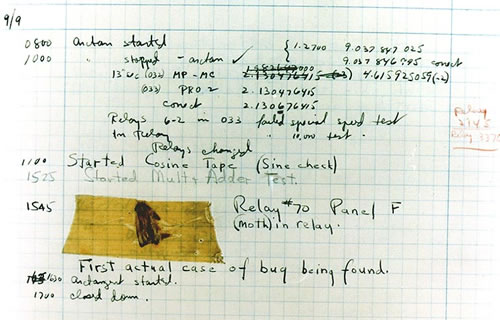 9/9
0800 antan started { 1.2700 9.037 847 025
1000 " stopped - antan ✓ 9.037 846 995 correct
13"uc (032) MP - MC 2.130476415 4.615925059(-2)
(033) PRO 2 2.130476415
correct 2.130676415
Relays 6-2 in 033 failed special speed test
In Relay " 10,000 test .
Relays changed
Relay
2145
Relay 3370
1100 Started Cosine Tape (Sine check)
1525 Started Mult + Adder Test.
1545 Relay #70 Panel F
(moth) in relay.
First actual case of bug being found.
1630 antangent started.
1700 closed down.